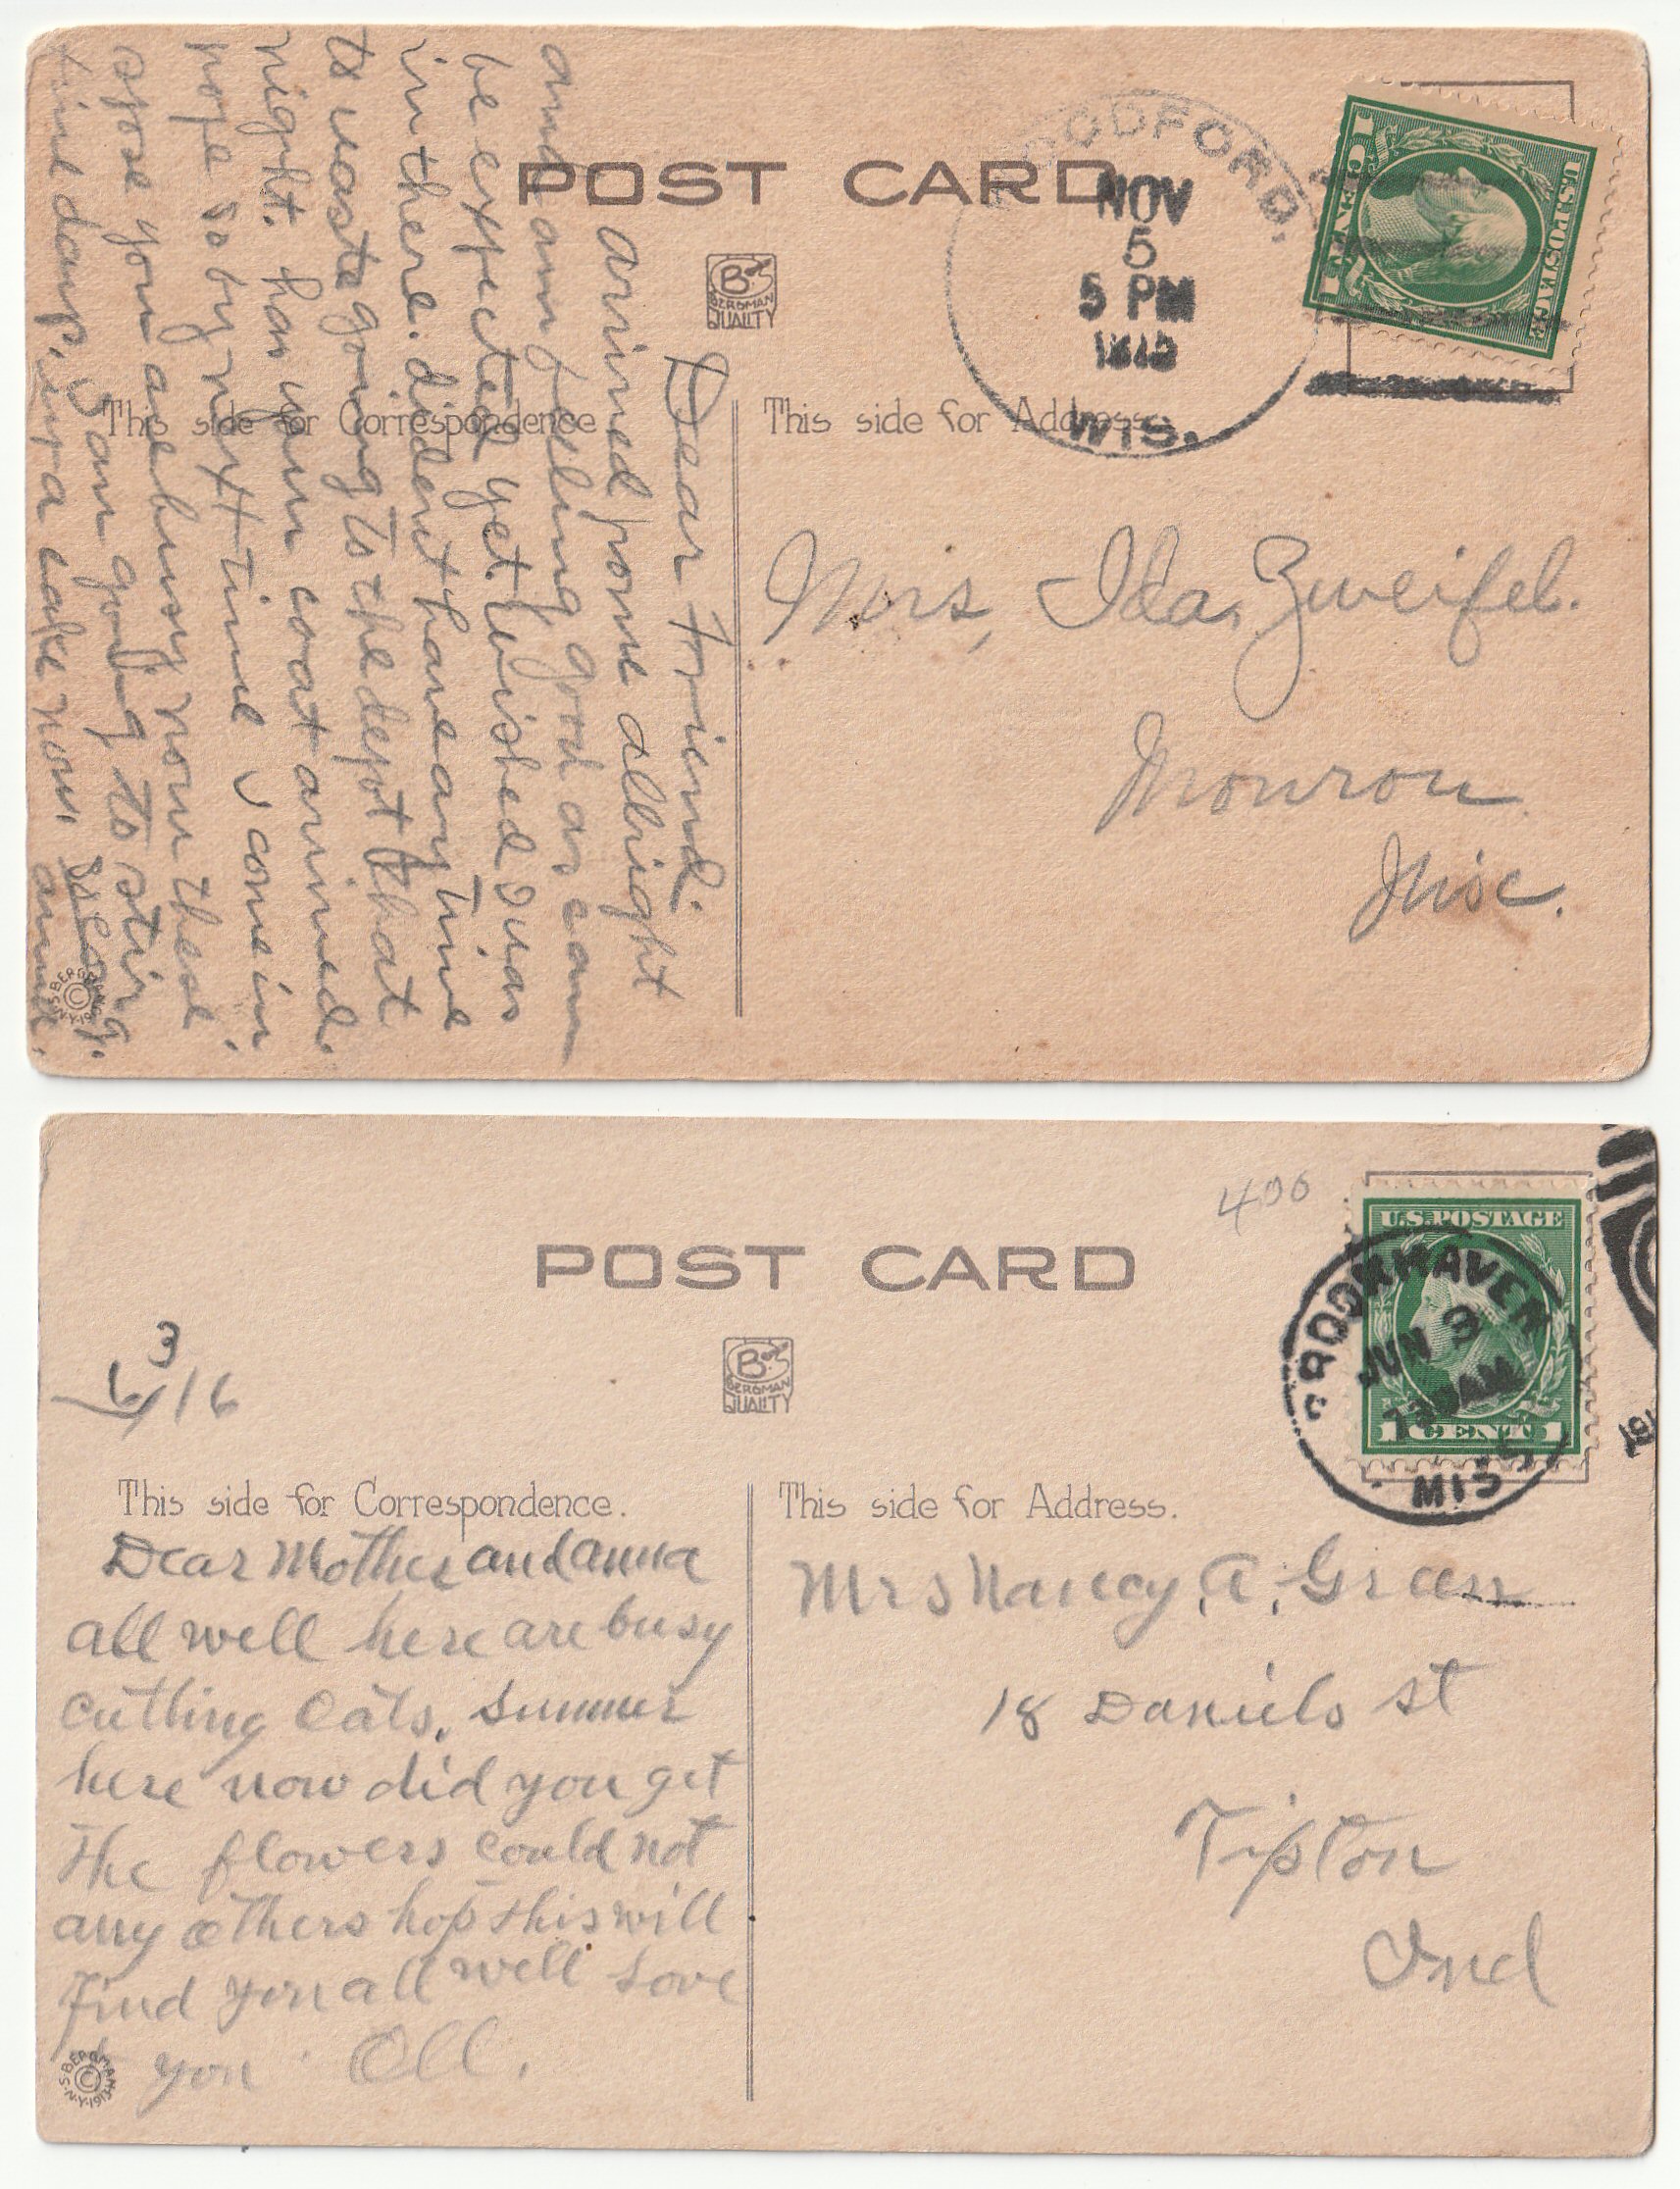 POST CARD
WOODFORD.
NOV
5
5 PM
WIS.
U.S. POSTAGE
1 CENT 1
BS
BERGMAN
QUALITY
This side for Correspondence.
This side for Address.
Dear Friend.
arrived home allright
and am feeling good as can
be expected yet. wished I was
in there. dident have any time
to waste going to the depot that
night. has your coat arrived.
hope so by next time I come in.
spose you are busy now these
time days. I am going to stir
up a cake now. so long.
anna.
Mrs, Ida, Zweifel.
Monroe
Wisc.
POST CARD
400
U.S. POSTAGE
1 CENT 1
BROOKHAVEN
JUN 3
730AM
MISS
BS
BERGMAN
QUALITY
6/3/16
This side for Correspondence.
This side for Address.
Dear Mother and anna
all well here are busy
cutting Oats. Summer
here now did you get
the flowers could not
any others hop this will
find you all well Love
to you Oll.
Mrs Nancy, A, Green
18 Daniels st
Tipton
Ind